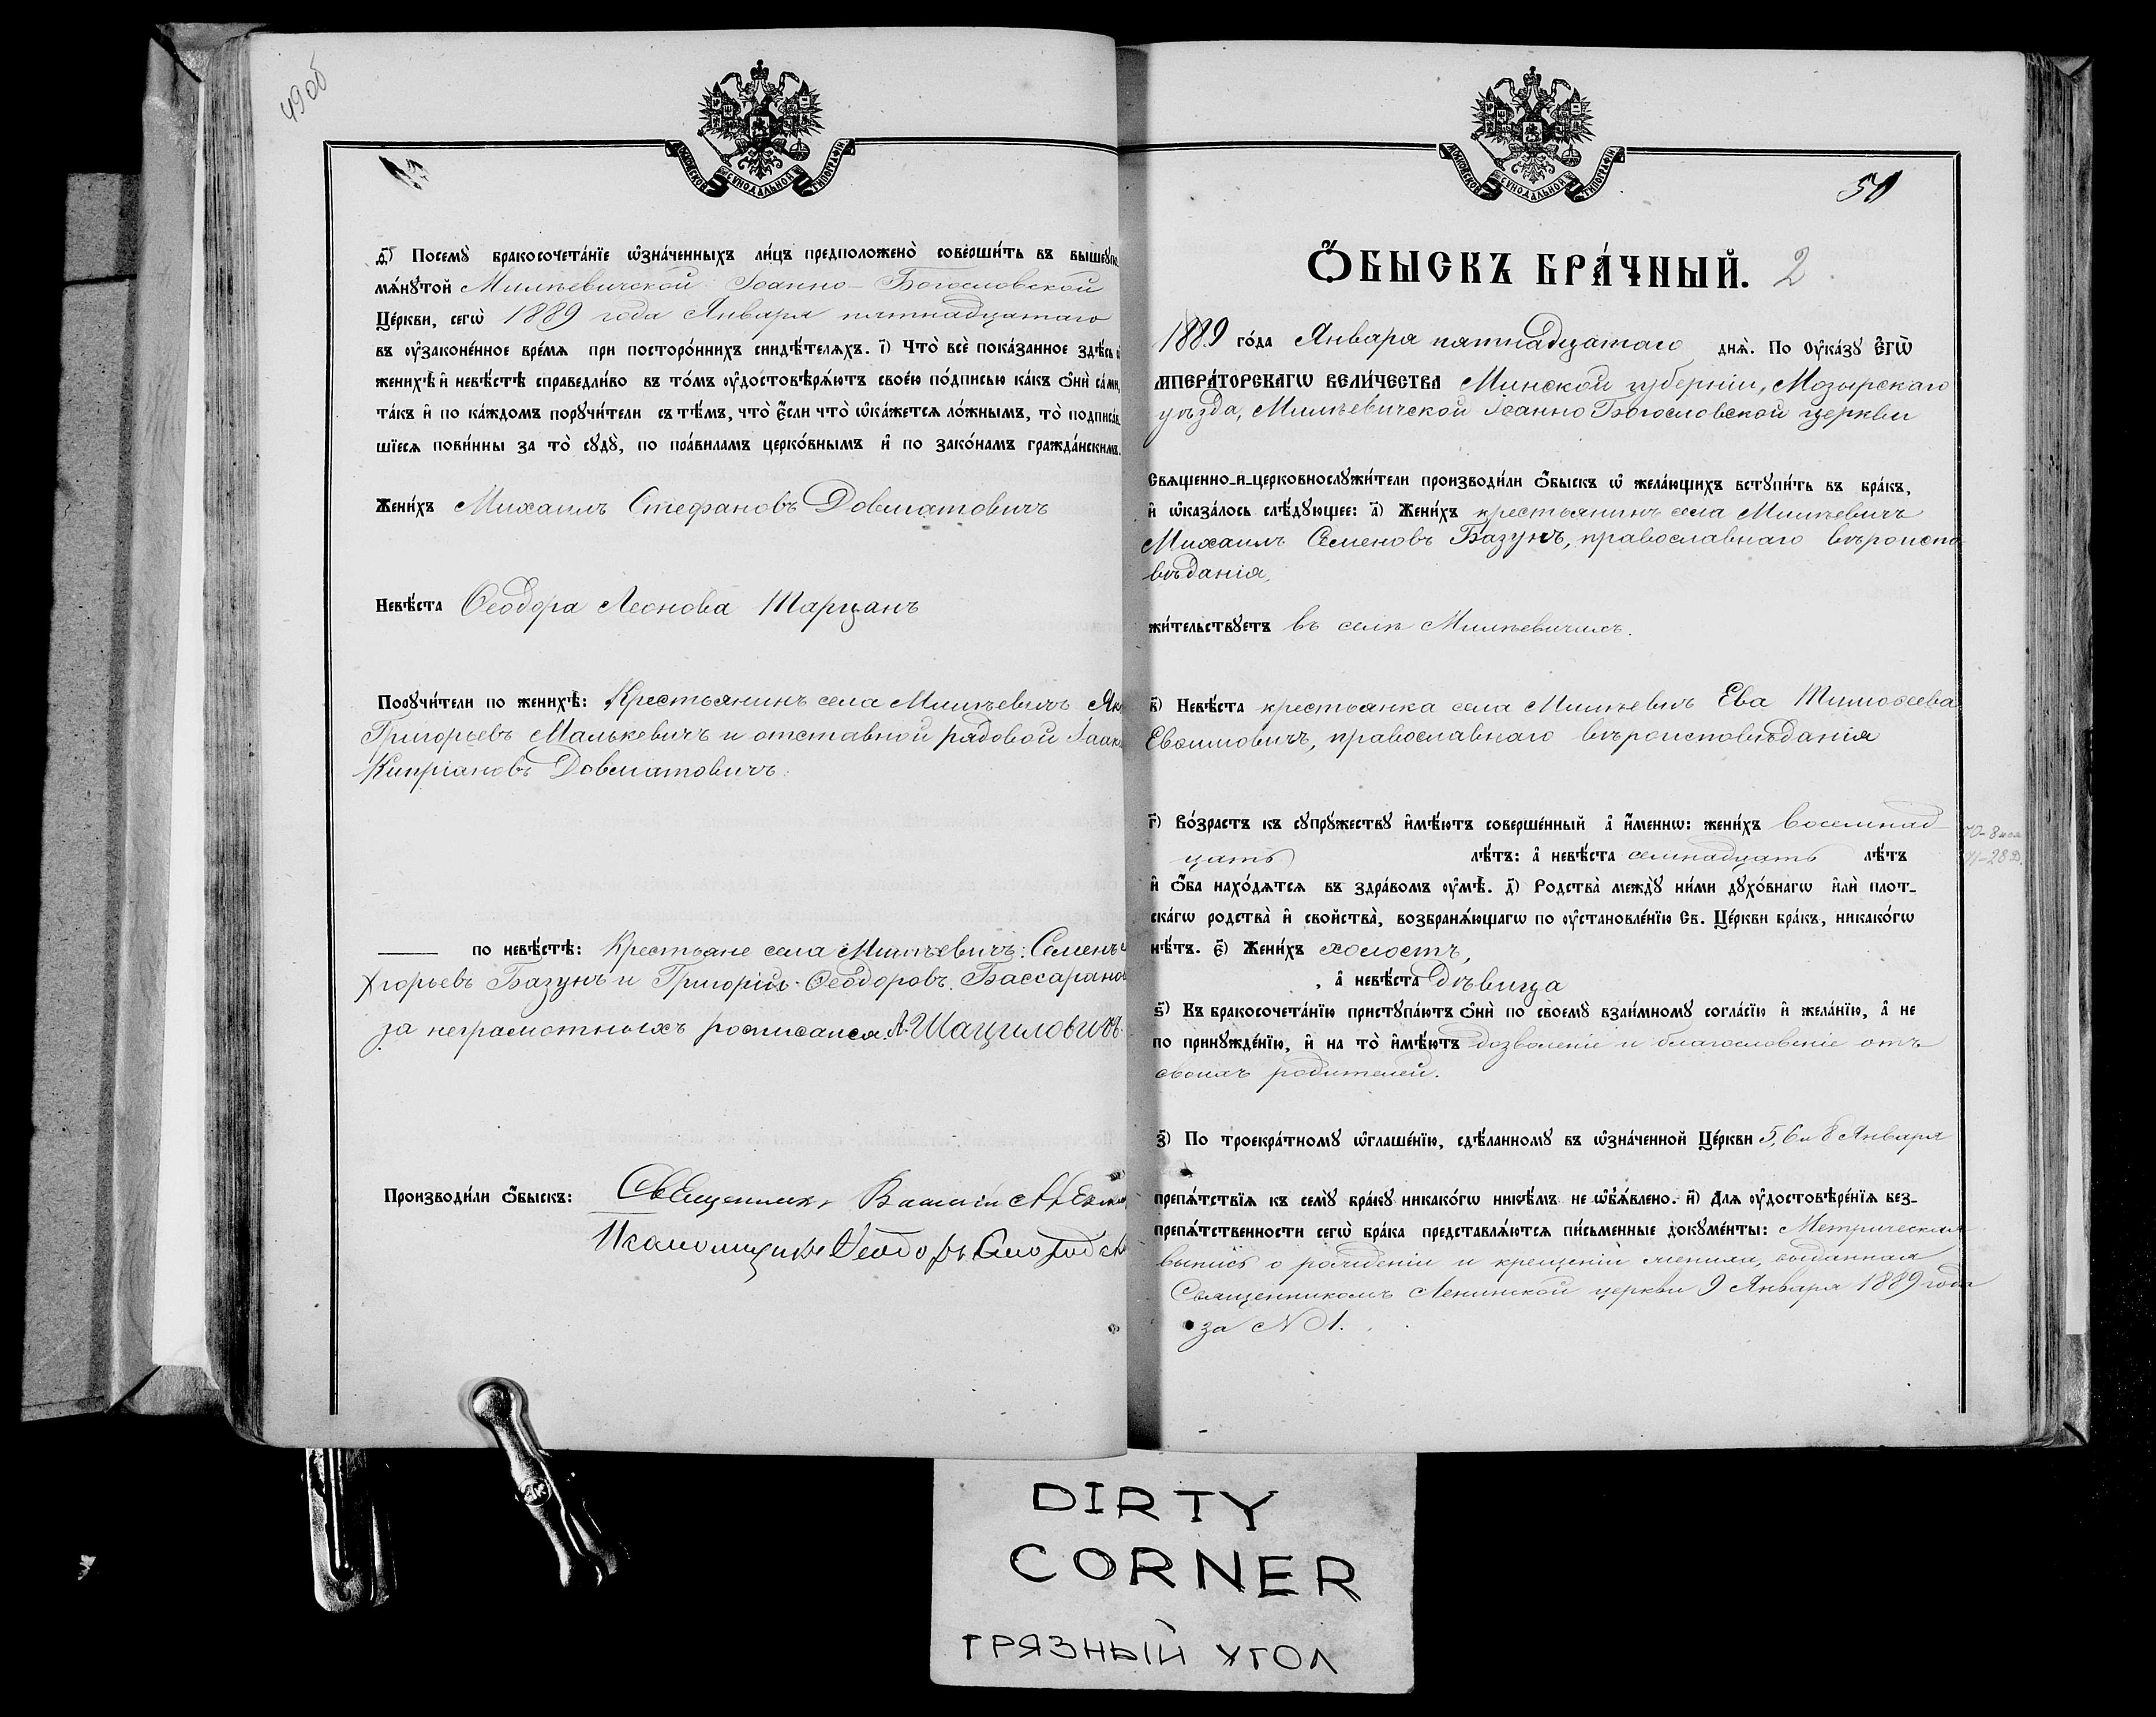 49об
МОСКОВСКОЙ СѴНОДАЛЬНОЙ ТИПОГРАФІИ
д҃і) Посемꙋ̀ бракосочета́нїе ѡ҆зна́ченныхъ ли́цъ предположено̀ соверши́ть въ вышеꙋпо-
мѧ́нꙋтой Милѣевичской Іоанно-Богословской
Це́ркви, сегѡ̀ 1889 года Января пятнадцатаго
въ ᲂу҆законе́нное вре́мѧ при посторо́ннихъ свидѣ́телѧхъ. і҃) Что̀ всѐ пока́занное здѣ́сь ѡ҆
женихѣ̀ и҆ невѣ́стѣ справедли́во въ то́мъ ᲂу҆достовѣрѧ́ютъ свое́ю по́дписью ка́къ ѻ҆нѝ са́ми,
та́къ и҆ по ка́ждомъ порꙋчи́тели съ тѣ́мъ, что̀ є҆́сли что̀ ѡ҆ка́жетсѧ ло́жнымъ, то̀ подписа́в-
шїесѧ пови́нны за то̀ сꙋдꙋ̀, по пра́виламъ церко́внымъ и҆ по зако́намъ гражда́нскимъ.
Жени́хъ Михаилъ Стефановъ Довматовичъ
Невѣ́ста Ѳеодора Леонова Тарцанъ
Порꙋчи́тели по женихѣ̀: Крестьянинъ села Милѣевичъ Як
Григорьевъ Малькевичъ и отставной рядовой Іоак
Кипріановъ Довматовичъ.
по невѣ́стѣ: Крестьяне села Милѣевичъ: Семенъ
горьевъ Базунъ и Григорій Ѳеодоровъ Бассаранов
за неграмотныхъ росписался А. Шациловичъ.
Производи́ли ѻ҆́быскъ: Священникъ
Псаломщикъ Ѳеодоръ
МОСКОВСКОЙ СѴНОДАЛЬНОЙ ТИПОГРАФІИ
50
Ѻ҆́БЫСКЪ БРА́ЧНЫЙ. 2
1889 го́да Января пятнадцатаго днѧ̀. По ᲂу҆ка́зꙋ Є҆гѡ̀
ИМПЕРА́ТОРСКАГѠ ВЕЛИ́ЧЕСТВА Минской губерніи, Мозырскаго
уѣзда, Милѣевичской Іоанно Богословской церкви
Свѧщенно-и-церковнослꙋжи́тели производи́ли ѻ҆́быскъ ѡ҆ жела́ющихъ встꙋпи́ть въ бра́къ,
и҆ ѡ҆каза́лось слѣ́дꙋющее: а҃) Жени́хъ крестьянинъ села Милѣевичъ
Михаилъ Семеновъ Базунъ, православнаго вѣроиспо-
вѣданія,
жи́тельствꙋетъ въ селѣ Милѣевичахъ.
в҃) Невѣ́ста крестьянка села Милѣевичъ Ева Тимоѳеева
Евсимовичъ, православнаго вѣроисповѣданія
г҃) Во́зрастъ къ сꙋпрꙋжествꙋ и҆мѣ́ютъ соверше́нный а҆ и҆́меннѡ: жени́хъ восемнад-
цать лѣ́тъ: а҆ невѣ́ста семнадцать лѣ́тъ
и҆ ѻ҆́ба нахо́дѧтсѧ въ здра́вомъ ᲂу҆мѣ̀. д҃) Родства̀ междꙋ̀ ни́ми дꙋхо́внагѡ и҆лѝ плот-
ска́гѡ родства̀ и҆ свойства̀, возбранѧ́ющагѡ по ᲂу҆становле́нїю Св. Це́ркви бра́къ, никако́гѡ
нѣ́тъ. є҃) Жени́хъ холостъ,
, а҆ невѣ́ста дѣвица
ѕ҃) Къ бракосочета́нїю пристꙋпа́ютъ ѻ҆нѝ по своемꙋ̀ взаи́мномꙋ согла́сїю и҆ жела́нїю, а҆ не
по принꙋжде́нїю, и҆ на то̀ и҆мѣ́ютъ дозволеніе и благословеніе отъ
своихъ родителей.
з҃) По троекра́тномꙋ ѡ҆глаше́нїю, сдѣ́ланномꙋ въ ѡ҆зна́ченной Це́ркви 5, 6 и 8 Января
препѧ́тствїѧ къ семꙋ̀ бра́кꙋ никако́гѡ никѣ́мъ не ѡ҆б̾ѧ́влено. и҃) Длѧ ᲂу҆достовѣре́нїѧ без-
препѧ́тственности сегѡ̀ бра́ка представлѧ́ютсѧ пи́сьменные докꙋме́нты: Метрическая
выпись о рожденіи и крещеніи жениха, выданная
Священникомъ Ленинской церкви 9 Января 1889 года
за № 1.
DIRTY
CORNER
ГРЯЗНЫЙ УГОЛ